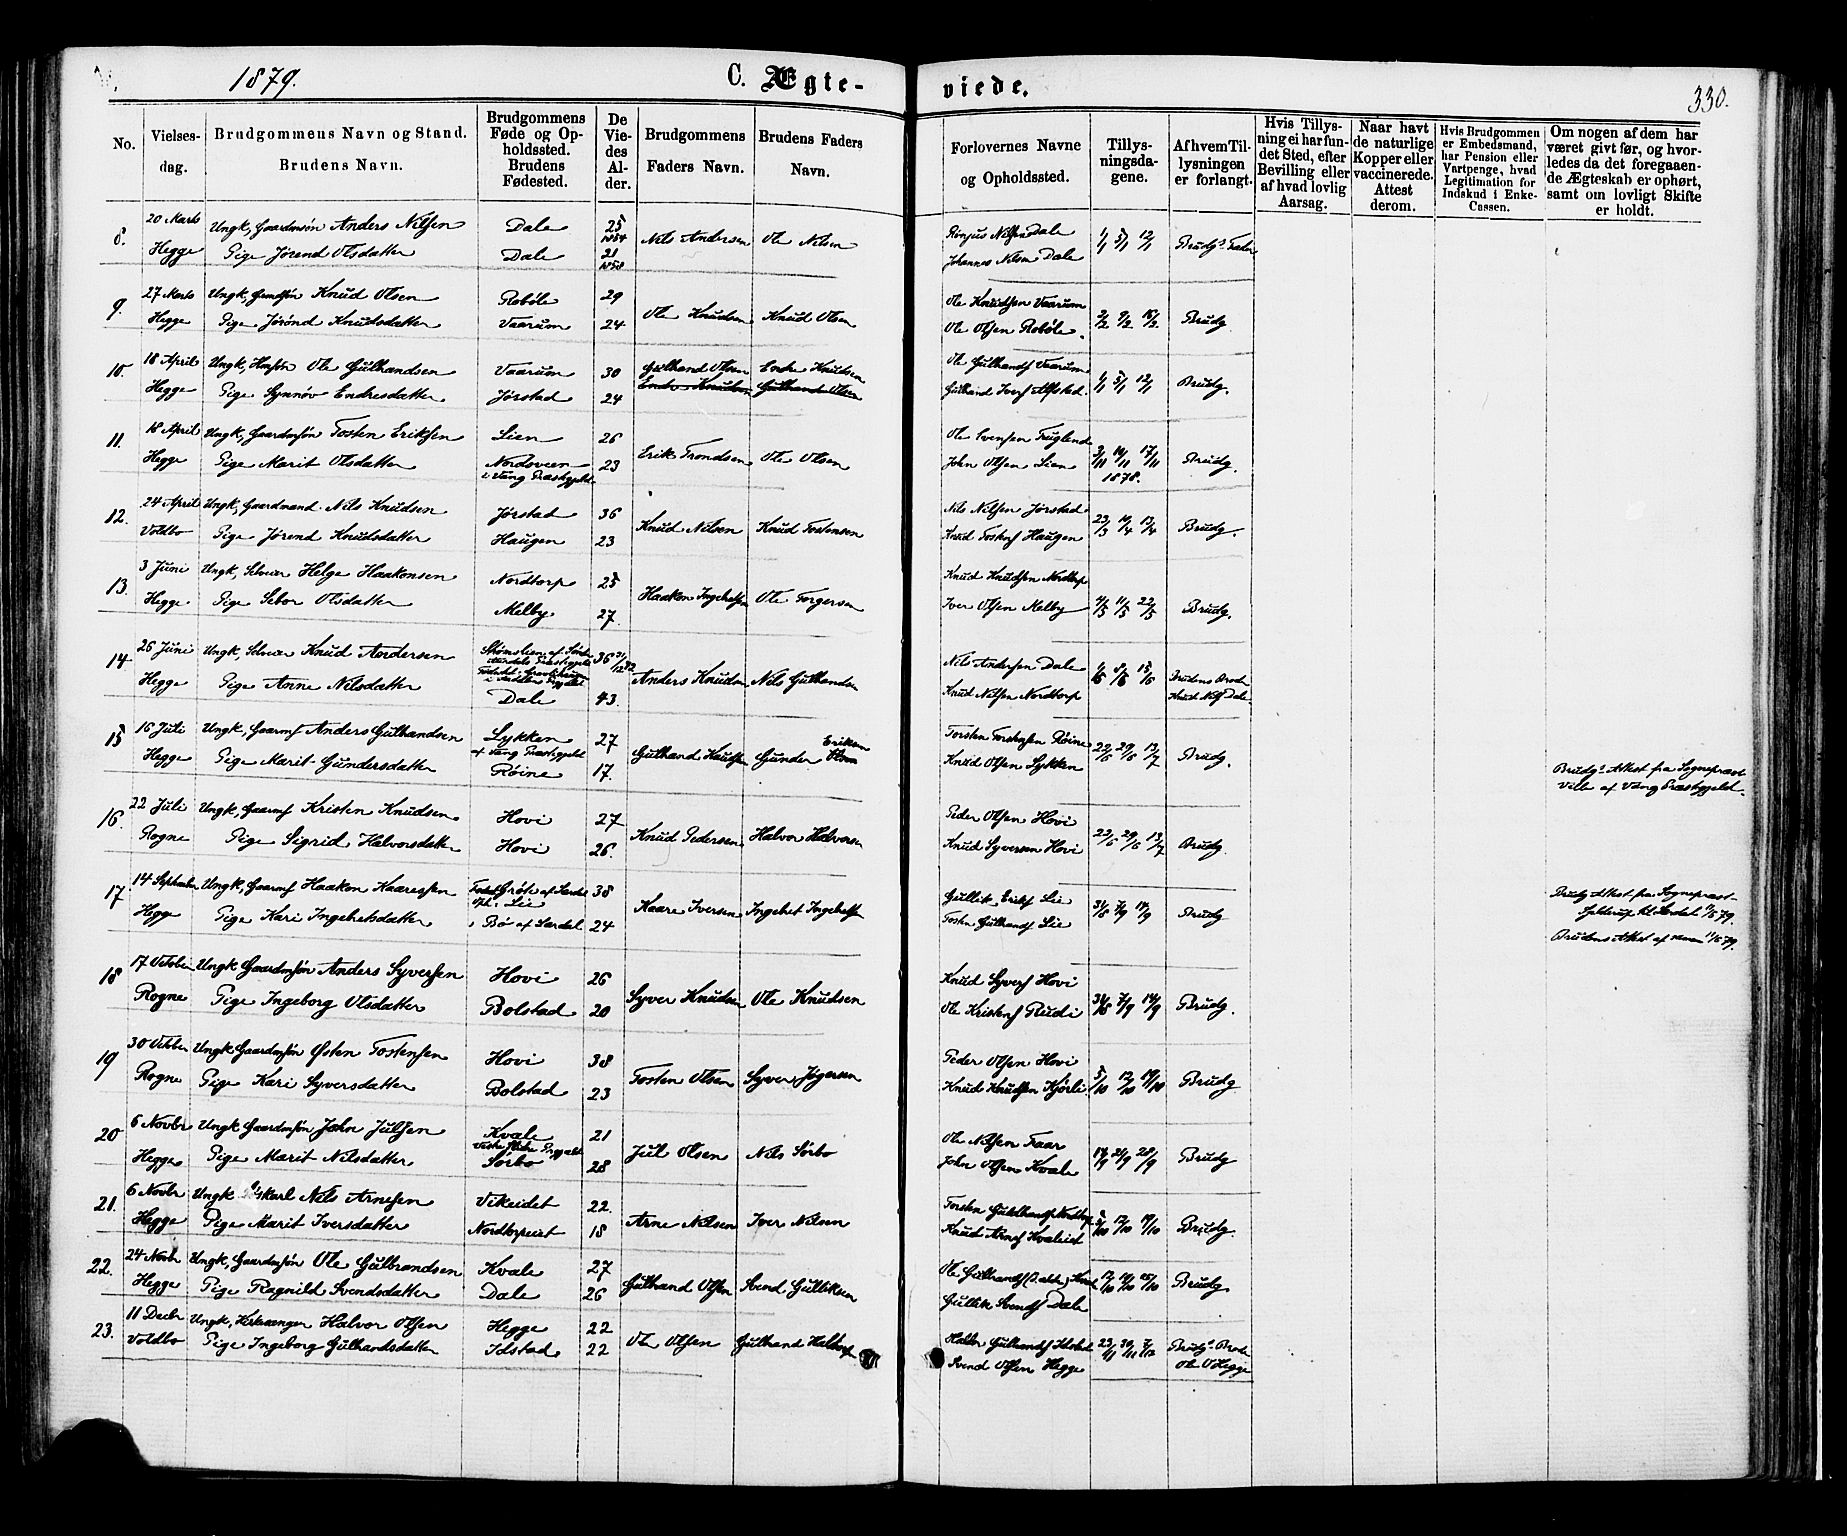 1879.
C. Ægte-
viede.
330.
No.
Vielses-
dag.
Brudgommens Navn og Stand.
Brudens Navn.
Brudgommens
Føde og Op-
holdssted.
Brudens
Fødested.
De
Vie-
des
Al-
der.
Brudgommens
Faders Navn.
Brudens Faders
Navn.
Forlovernes Navne
og Opholdssted.
Tillys-
ningsda-
gene.
Af hvem Til-
lysningen
er forlangt.
Hvis Tillys-
ning ei har fun-
det Sted, efter
Bevilling eller
af hvad lovlig
Aarsag.
Naar havt
de naturlige
Kopper eller
vaccinerede.
Attest
derom.
Hvis Brudgommen
er Embedsmand,
har Pension eller
Vartpenge, hvad
Legitimation for
Indskud i Enke-
Cassen.
Om nogen af dem har
været givt før, og hvor-
ledes da det foregaaen-
de Ægteskab er ophørt,
samt om lovligt Skifte
er holdt.
8. 20 Marts Ungk, Gaardmsøn Anders Nilsen Dale 25 1854 Nils Andersen Ole Nilsen Nilsen Dale 1/1 5/1 12/1 Brudgs Fader
Hegge Pige Jørend Olsdatter Dale 21 1858 Johannes Nilsen Dale
9. 27 Marts Ungk, Knud Olsen Robøle 29 Ole Knudsen Knud Olsen Ole Knudsen Vaarum 2/2 9/2 16/2 Brudg.
Hegge Pige Jørønd Knudsdatter Vaarum 24 Ole Olsen Robøle.
10. 18 April Ungk, Ole Gulbrandsen Vaarum 30 Gulbrand Olsen Endre Knudsen Ole Gulbrands Vaarum 1/1 5/1 12/1 Brudg.
Hegge Pige Synnøv Endresdatter Jørstad 24 Endre Knudsen Gulbrand Olsen Gulbrand Ivers Alfstad
11. 18 April Ungk, Gaardmsøn Tosten Eriksen Lien 26 Erik Trondsen Ole Olsen Ole Svensen 3/11 10/11 17/11 Brudg.
Hegge Pige Marit Olsdatter Nordsveen 23 John Olsen Lien 1878.
i Vang Præstegjeld
12. 24 April Ungk, Gaardmand Nils Knudsen Jørstad 36 Knud Nilsen Knud Tostensen Nils Nilsen Jørstad 23/3 10/4 13/4 Brudg.
Voldbo Pige Jørend Knudsdatter Haugen 23 Knud Tostens Haugen
13. 3 Juni Ungk, Helge Haakonsen Nordtorp 25 Haakon Ole Torgersen Knud Knudsen Nordtorp 4/5 11/5 22/5 Brudg.
Hegge Pige Sebor Olsdatter Melby 27. Iver Olsen Melby
14. 26 Juni Ungk, Knud Andersen 36 Anders Knudsen Nils Gulbrandsen Nils Andersen Dale 1/6 8/6 15/6 Brudens Broder
Hegge Pige Anne Nilsdatter Dale 43. Knud Nilsen Nordtorp Knud Nils Dale
15. 16 Juli Ungk, Gaarmf Anders Gulbrandsen Lykken 27 Gulbrand Knudsen Gunder Eriksen Torsten Torstensen Røine 22/6 29/6 13/7 Brudg.
Hegge Pige Marit Gundersdatter af Vang Præstegjeld Røine 17. Knud Olsen Lykken
Brudgs Attest fra Sognepræst
af Vang Præstegjeld.
16. 22 Juli Ungk, Gaarmf Kristen Knudsen Hovi 27 Knud Pedersen Halvor Halvorsen Peder Olsen Hovi 22/6 29/6 13/7 Brudg.
Rogne Pige Sigrid Halvorsdatter Hovi 26. Knud Syversen Hovi
17 14 September Ungk, Gaarmf Haakon Kaaressen 38 Kaare Iversen Ingebret Gullik Eriks Lie 31/8 7/9 14/9 Brudg
Hegge Pige Kari Ingebretsdatter Bø af Lærdal 24 Tosten Gulbrands Lie
Brudg Attest fra Sognepræst
Brudens Attest af
18 17 Octobr Ungk Gaardmsøn Anders Syversen Hovi 26 Syver Knudsen Ole Knudsen Knud Syvers Hovi 31/8 7/9 14/9 Brudg.
Rogne Pige Ingeborg Olsdatter Bolstad 20 Ole Kristens Rudi
19 30 Octobr Ungk Gaardmsøn Østen Tostensen Hovi 38 Tosten Olsen Syver Peder Olsen Hovi 5/10 12/10 19/10 Brudg
Rogne Pige Kari Syversdatter Bolstad 23 Knud Knudsen Kjørli
20 6 Novbr Ungk Gaardmsøn John Julsen Kvale 21 Jul Olsen Nils Sørbo Ole Nilsen 14/9 21/9 28/9 Brudg
Hegge Pige Marit Nilsdatter Sørbo 28 John Olsen Kvale
21. 6 Novbr Ungk Nils Arnesen Vikeidet 22 Arne Nilsen Iver Nilsen Torsten 5/10 12/10 19/10 Brudg.
Hegge Pige Marit Iversdatter 18 Knud Arnes
22. 24 Novbr Ungk, Gaardmsøn Ole Gulbrandsen Kvale 27 Gulbrand Olsen Svend Gulliksen Ole Gulbrands Brudg
Hegge Pige Ragnild Svendsdatter Dale 26 Gullik Svends Dale
23. 11 Decbr Ungk, Kirkesanger Halvor Olsen Hegge 22 Ole Olsen Gulbrand 23/11 30/11 7/12 Brudgs Broder
Voldbo Pige Ingeborg Gulbrandsdatter Idstad 22 Svend Olsen Hegge Ole O Hegge